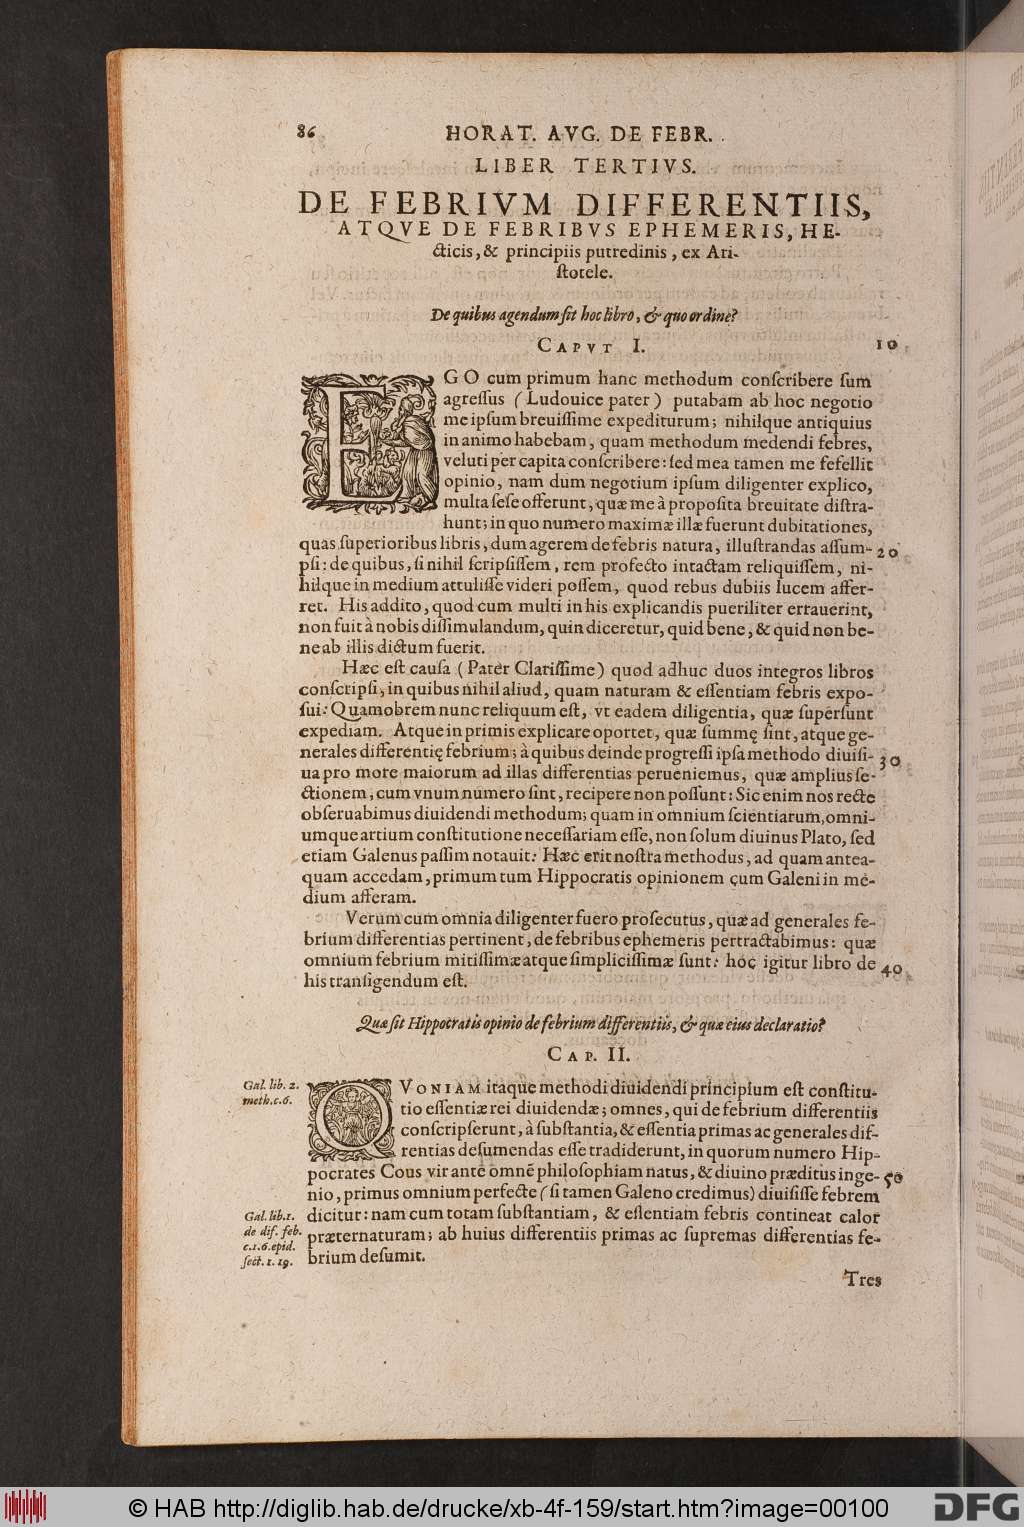 86
HORAT. AVG. DE FEBR.
LIBER TERTIVS.
DE FEBRIVM DIFFERENTIIS,
ATQVE DE FEBRIBVS EPHEMERIS, HE-
cticis, & principiis putredinis, ex Ari-
ſtotele.
De quibus agendum ſit hoc libro, & quo ordine?
CAPVT I.
10
EGO cum primum hanc methodum conſcribere ſum
agreſſus (Ludouice pater) putabam ab hoc negotio
me ipſum breuiſſime expediturum; nihilque antiquius
in animo habebam, quam methodum medendi febres,
veluti per capita conſcribere: ſed mea tamen me fefellit
opinio, nam dum negotium ipſum diligenter explico,
multa ſeſe offerunt, quæ me à propoſita breuitate diſtra-
hunt; in quo numero maximæ illæ fuerunt dubitationes,
quas ſuperioribus libris, dum agerem de febris natura, illuſtrandas aſſum-
20
pſi: de quibus, ſi nihil ſcripſiſſem, rem profecto intactam reliquiſſem, ni-
hilque in medium attuliſſe videri poſſem, quod rebus dubiis lucem affer-
ret. His addito, quod cum multi in his explicandis pueriliter errauerint,
non fuit à nobis diſſimulandum, quin diceretur, quid bene, & quid non be-
ne ab illis dictum fuerit.
Hæc eſt cauſa (Pater Clariſſime) quod adhuc duos integros libros
conſcripſi, in quibus nihil aliud, quam naturam & eſſentiam febris expo-
ſui: Quamobrem nunc reliquum eſt, vt eadem diligentia, quæ ſuperſunt
expediam. Atque in primis explicare oportet, quæ ſummę ſint, atque ge-
nerales differentię febrium; à quibus deinde progreſſi ipſa methodo diuiſi-
30
ua pro more maiorum ad illas differentias perueniemus, quæ amplius ſe-
ctionem, cum vnum numero ſint, recipere non poſſunt: Sic enim nos recte
obſeruabimus diuidendi methodum; quam in omnium ſcientiarum, omni-
umque artium conſtitutione neceſſariam eſſe, non ſolum diuinus Plato, ſed
etiam Galenus paſſim notauit: Hæc erit noſtra methodus, ad quam antea-
quam accedam, primum tum Hippocratis opinionem cum Galeni in me-
dium afferam.
Verum cum omnia diligenter fuero proſecutus, quæ ad generales fe-
brium differentias pertinent, de febribus ephemeris pertractabimus: quæ
omnium febrium mitiſſimæ atque ſimpliciſſimæ ſunt: hoc igitur libro de
40
his tranſigendum eſt.
Quæ ſit Hippocratis opinio de febrium differentiis, & quæ eius declaratio?
CAP. II.
Gal. lib. 2.
meth. c. 6.
QVONIAM itaque methodi diuidendi principium eſt conſtitu-
tio eſſentiæ rei diuidendæ; omnes, qui de febrium differentiis
conſcripſerunt, à ſubſtantia, & eſſentia primas ac generales dif-
rentias deſumendas eſſe tradiderunt, in quorum numero Hip-
pocrates Cous vir ante omnē philoſophiam natus, & diuino præditus inge-
50
nio, primus omnium perfecte (ſi tamen Galeno credimus) diuiſiſſe febrem
Gal. lib. 1.
de dif. feb.
c. 1. 6. epid.
ſect. 1. 29.
dicitur: nam cum totam ſubſtantiam, & eſſentiam febris contineat calor
præternaturam; ab huius differentiis primas ac ſupremas differentias fe-
brium deſumit.
Tres
© HAB http://diglib.hab.de/drucke/xb-4f-159/start.htm?image=00100
DFG